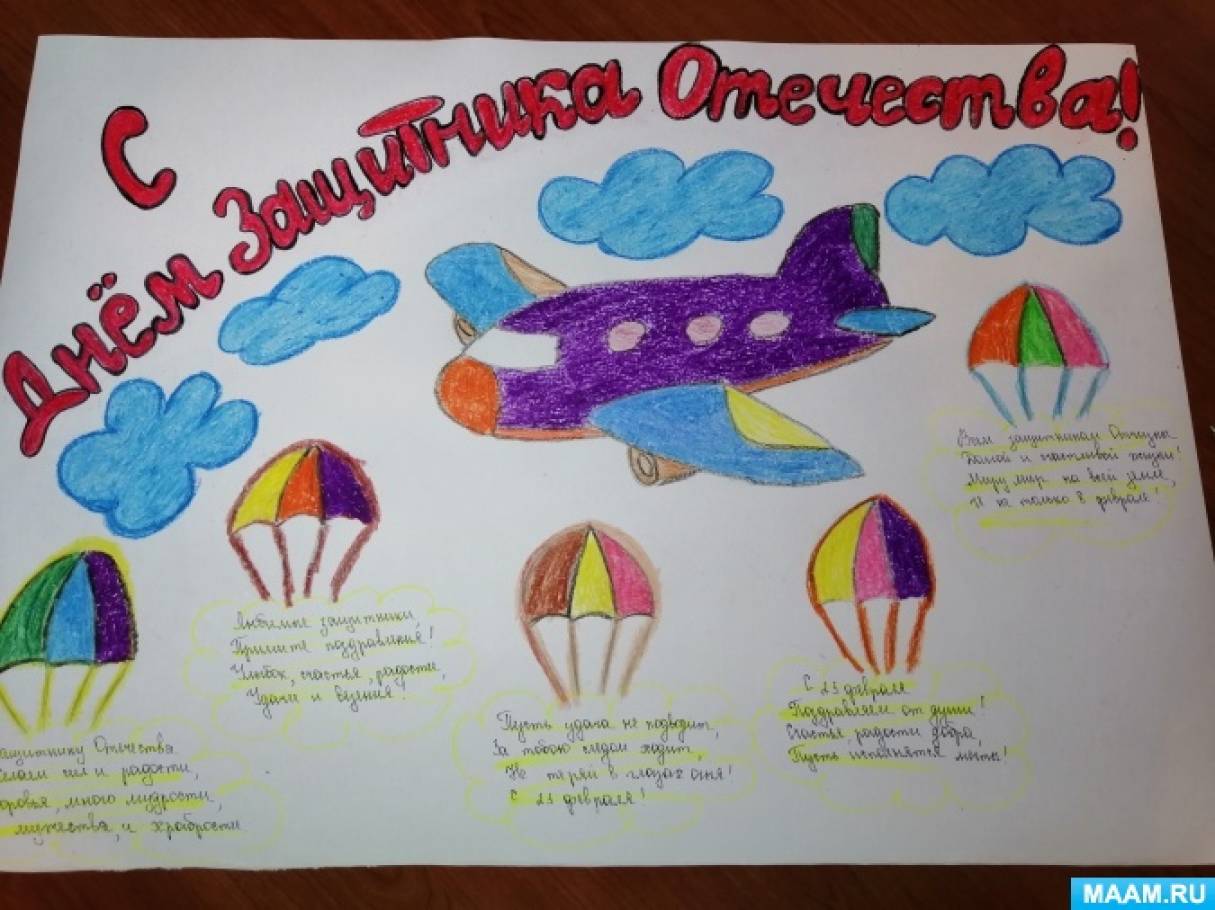 С
Днём Защитника Отечества!
Вам защитникам Отчизны
и счастливой жизни!
Миру мир на всей земле,
И не только в феврале!
Любимые защитники,
Примите поздравления!
Улыбок, счастья, радости,
Удачи и везения!
С 23 февраля
Поздравляем от души!
Счастья, радости, добра,
Пусть исполнятся мечты!
Пусть удача не подводит,
За тобою следом ходит,
Не теряй в глазах огня!
С 23 февраля!
ащитнику Отечества
елаем сил и радости,
оровья, много мудрости,
мужества, и храбрости
MAAM.RU